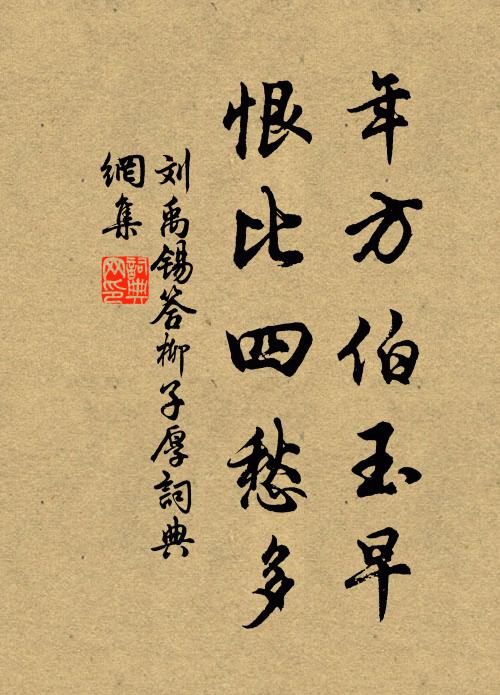 年方伯玉早
恨比四愁多
刘禹锡答柳子厚詞典
網集
詞典
网印